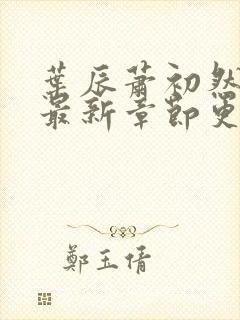 葉辰蕭初然
最新章節更
鄭玉倩